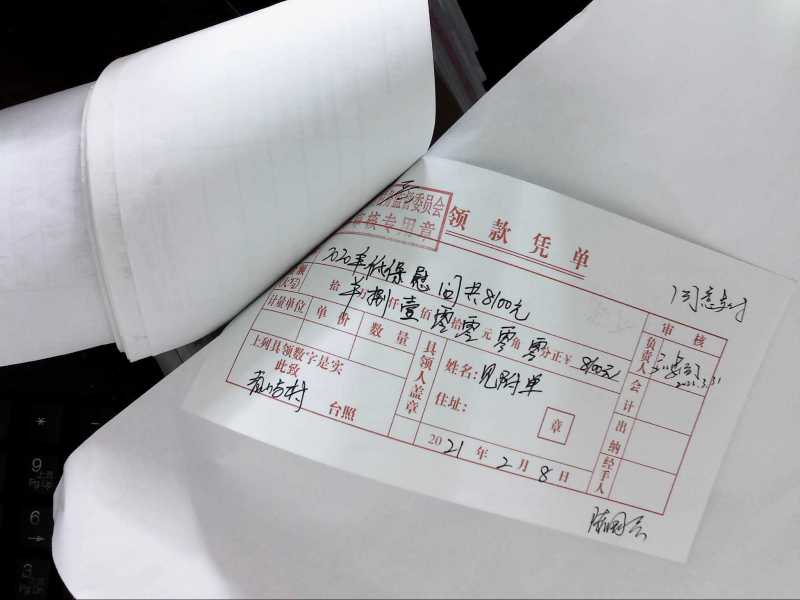 监督委员会
审核专用章
领款凭单
2020年低保慰问共8100元
同意支付
拾 万 捌仟 壹佰 零拾 零元 零角 零分正¥ 8100元
计量单位 单价 数量
上列具领数字是实
此致
台照
具领人盖章
姓名: 见附单
住址:
章
2021年2月8日
审核
负责人
会计
出纳
经手人